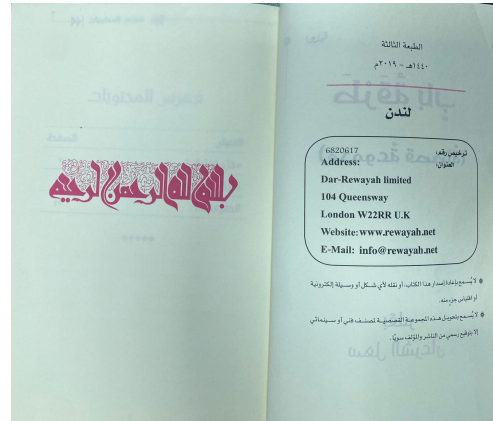 الطبعة الثالثة
١٤٤٠هـ - ٢٠١٩م
لندن
ترخيص رقم: 6820617
العنوان: Address:
Dar-Rewayah limited
104 Queensway
London W22RR U.K
Website: www.rewayah.net
E-Mail: info@rewayah.net
لا يُسمح بإعادة إصدار هذا الكتاب، أو نقله لأي شكل أو وسيلة إلكترونية
أو اقتباس جزء منه.
لا يُسمح بتحويل هذه المجموعة القصصية لمصنف فني أو سينمائي
إلا بتوقيع رسمي من الناشر والمؤلف سويًا.
بسم الله الرحمن الرحيم